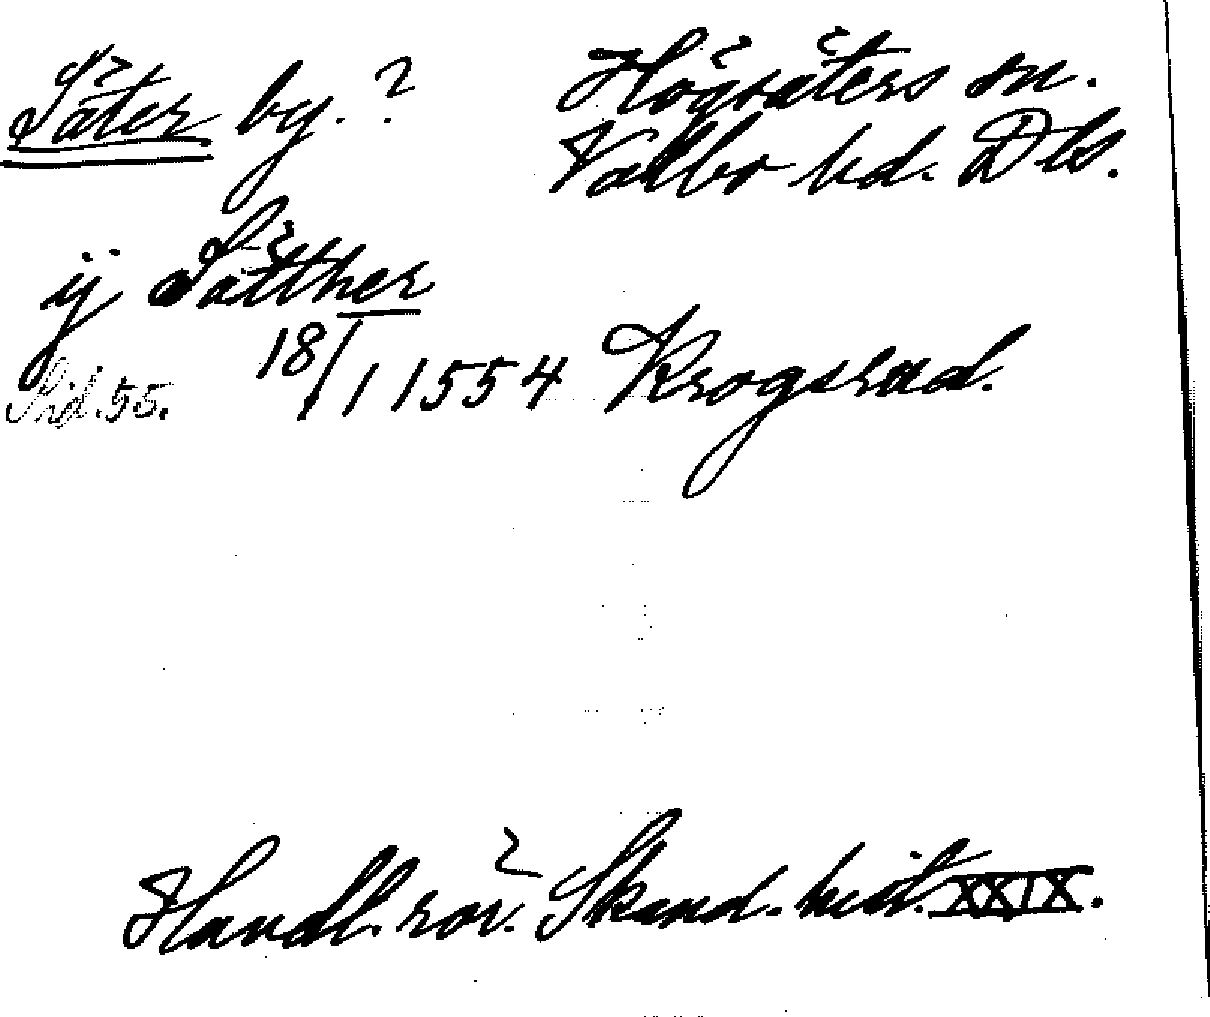 Säter by. ?
Högsäters sn.
Valbo hd. Dls.
ij Sätther
Sid. 55.
18/1 1554 Krogsrud.
Handl. rör. Skand. hist. XXIX.